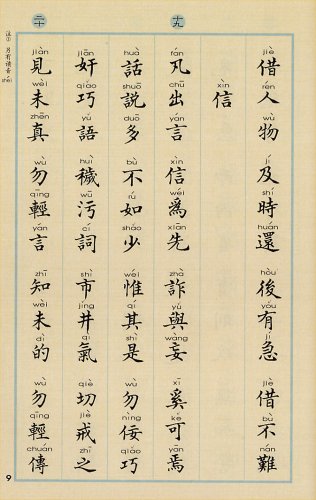 jiè rén wù jí shí huán hòu yǒu jí jiè bù nán
借人物 及時還 後有急 借不難
xìn
信
十九
fán chū yán xìn wéi xiān zhà yǔ wàng xī kě yān
凡出言 信爲先 詐與妄 奚可焉
huà shuō duō bù rú shǎo wéi qí shì wù nìng qiǎo
話說多 不如少 惟其是 勿佞巧
jiān qiǎo yǔ huì wū cí shì jǐng qì qiè jiè zhī
奸巧語 穢污詞 市井氣 切戒之
二十
jiàn wèi zhēn wù qīng yán zhī wèi dì wù qīng chuán
見未真 勿輕言 知未的 勿輕傳
9